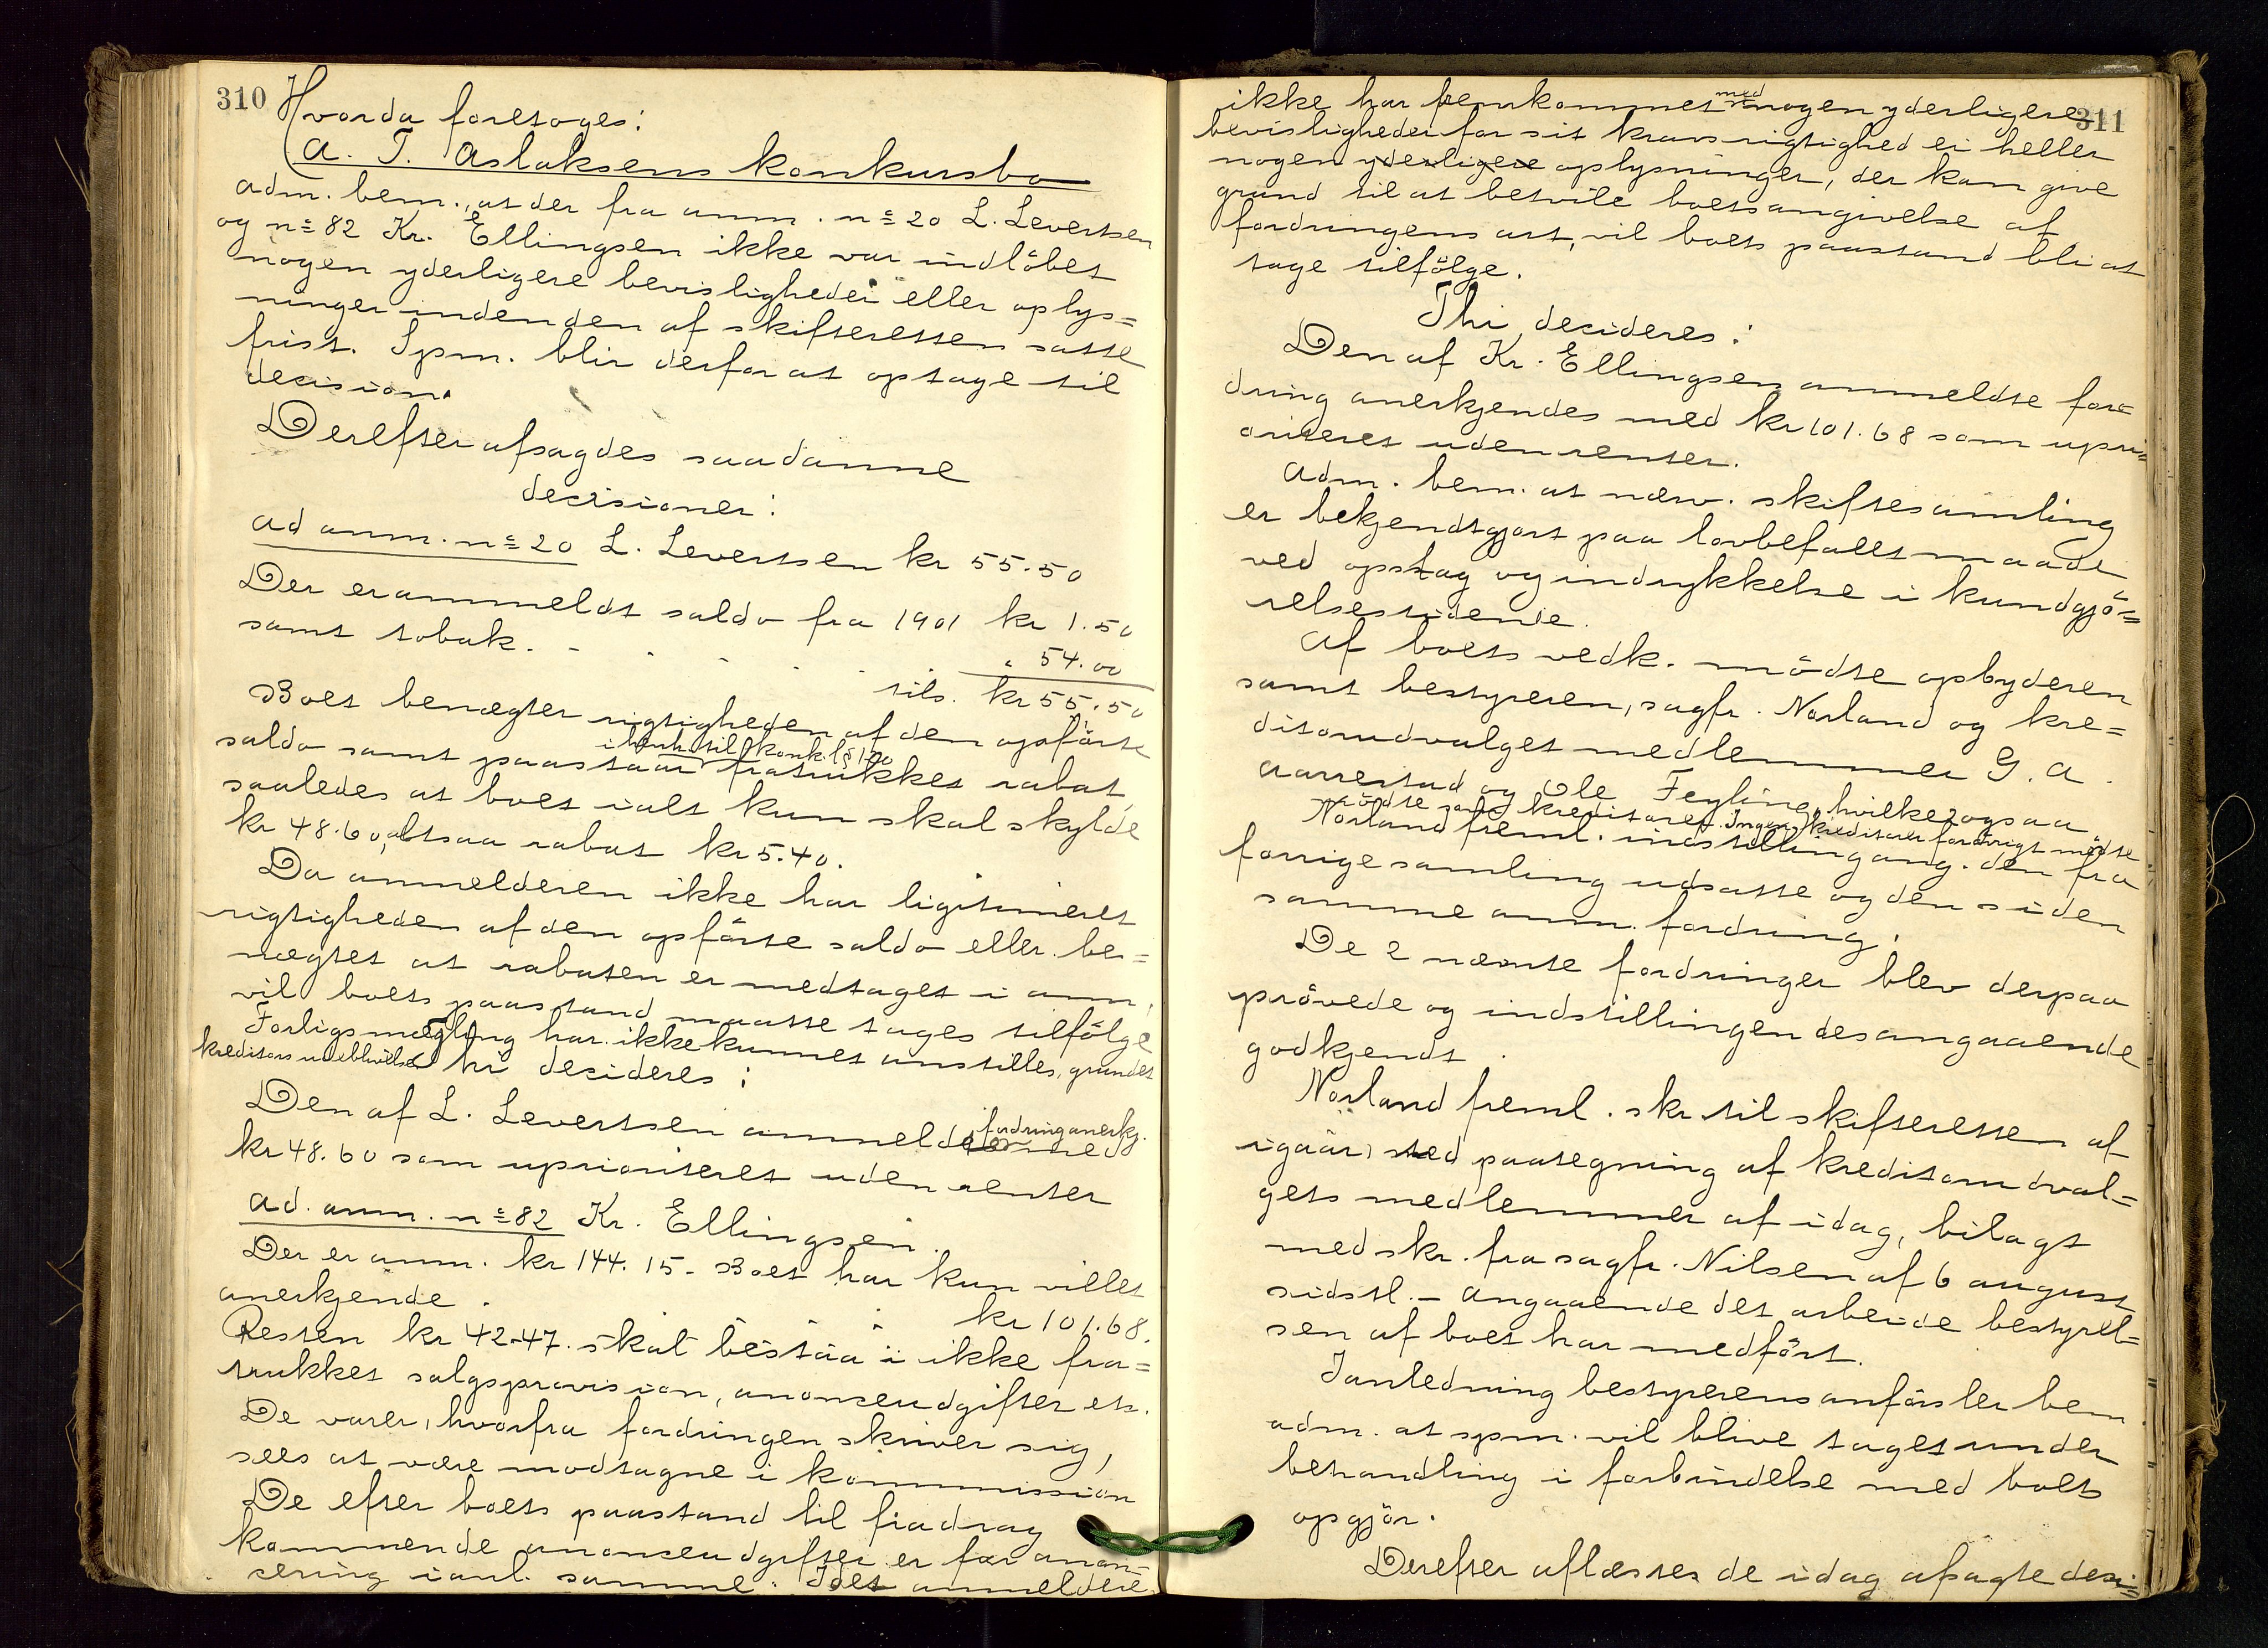 310
Hvorda foretoges:
A. T. Aslaksens konkursbo
Adm. bem., at der fra anm. no 20 L. Levertsen
og no 82 Kr. Ellingsen ikke var indløbet
nogen yderligere bevisligheder eller oplys=
ninger inden den af skifteretten satte
frist. Spm. blir derfor at optage til
decision.
Derefter afsagdes saadanne
decisioner:
ad anm. no 20 L. Levertsen kr 55.50
Der er anmeldt saldo fra 1901 kr 1.50
samt tobak. - - - - - . " 54.00
tils. kr 55.50
Boet benægter rigtigheden af den opførte
i henh. til konk.l § 120
saldo samt paastaar fratrukket rabat,
saaledes at boet ialt kun skal skylde
kr 48.60, altsaa rabat kr 5.40.
Da anmelderen ikke har ligitimeret
rigtigheden af den opførte saldo eller be=
nægtet at rabaten er medtaget i anm.,
vil boets paastand maatte tages tilfølge
Forligsmægling har ikke kunnet anstilles, grundet
kreditors udeblivelse Thi decideres:
Den af L. Levertsen anmeldte fordring anerkj. med
kr 48.60 som uprioriteret uden renter
ad. anm. no 82 Kr. Ellingsen.
Der er anm. kr 144.15. Boet har kun villet
anerkjende . - - - kr 101.68.
Resten kr 42.47. skal bestaa i ikke fra=
trukket salgsprovision, anonceudgifter etc.
De varer, hvorfra fordringen skriver sig,
sees at være modtagne i kommission
De efter boets paastand til fradrag
kommende anonceudgifter er for anon=
cering i anl. samme. Idet anmelderen
311
ikke har fremkommet med nogen yderligere
bevisligheder for sit kravs rigtighed ei heller
nogen yderligere oplysninger, der kan give
grund til at betvile boets angivelse af
fordringens art, vil boets paastand bli at
tage tilfølge.
Thi decideres:
Den af Kr. Ellingsen anmeldte for=
dring anerkjendes med kr 101.68 som upri=
oriteret uden renter.
Adm. bem. at nærv. skiftesamling
er bekjendtgjort paa lovbefallet maade
ved opslag og indrykkelse i kundgjø=
relsestidende.
Af boets vedk. mødte opbyderen
samt bestyreren, sagfr. Norland og kre=
ditorudvalget medlemmer G. A.
Aarrestad og Ole Feyling, hvilke ogsaa
mødte som kreditorer. Ingen kreditorer forøvrigt mødte
Norland freml. indstilling ang. den fra
forrige samling udsatte og den siden
samme anm. fordring.
De 2 nævnte fordringer blev derpaa
prøvede og indstillingen desangaaende
godkjendt.
Norland freml. skr. til skifteretten af
igaar, med paategning af kreditorudval=
gets medlemmer af idag, bilagt
med skr. fra sagfr. Nilsen af 6 august
sidstl. - angaaende det arbeide bestyrel=
sen af boet har medført.
I anledning bestyrerens anførsler bem
adm. at spm. vil blive taget under
behandling i forbindelse med boets
opgjør.
Derefter aflæstes de idag afsagte deci=